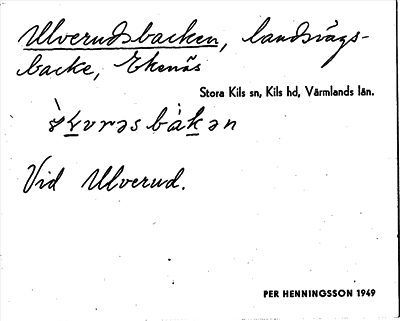 Ulverudsbacken, landsvägs-
backe, Ekenäs
Stora Kils sn, Kils hd, Värmlands län.
Vid Ulverud.
PER HENNINGSSON 1949